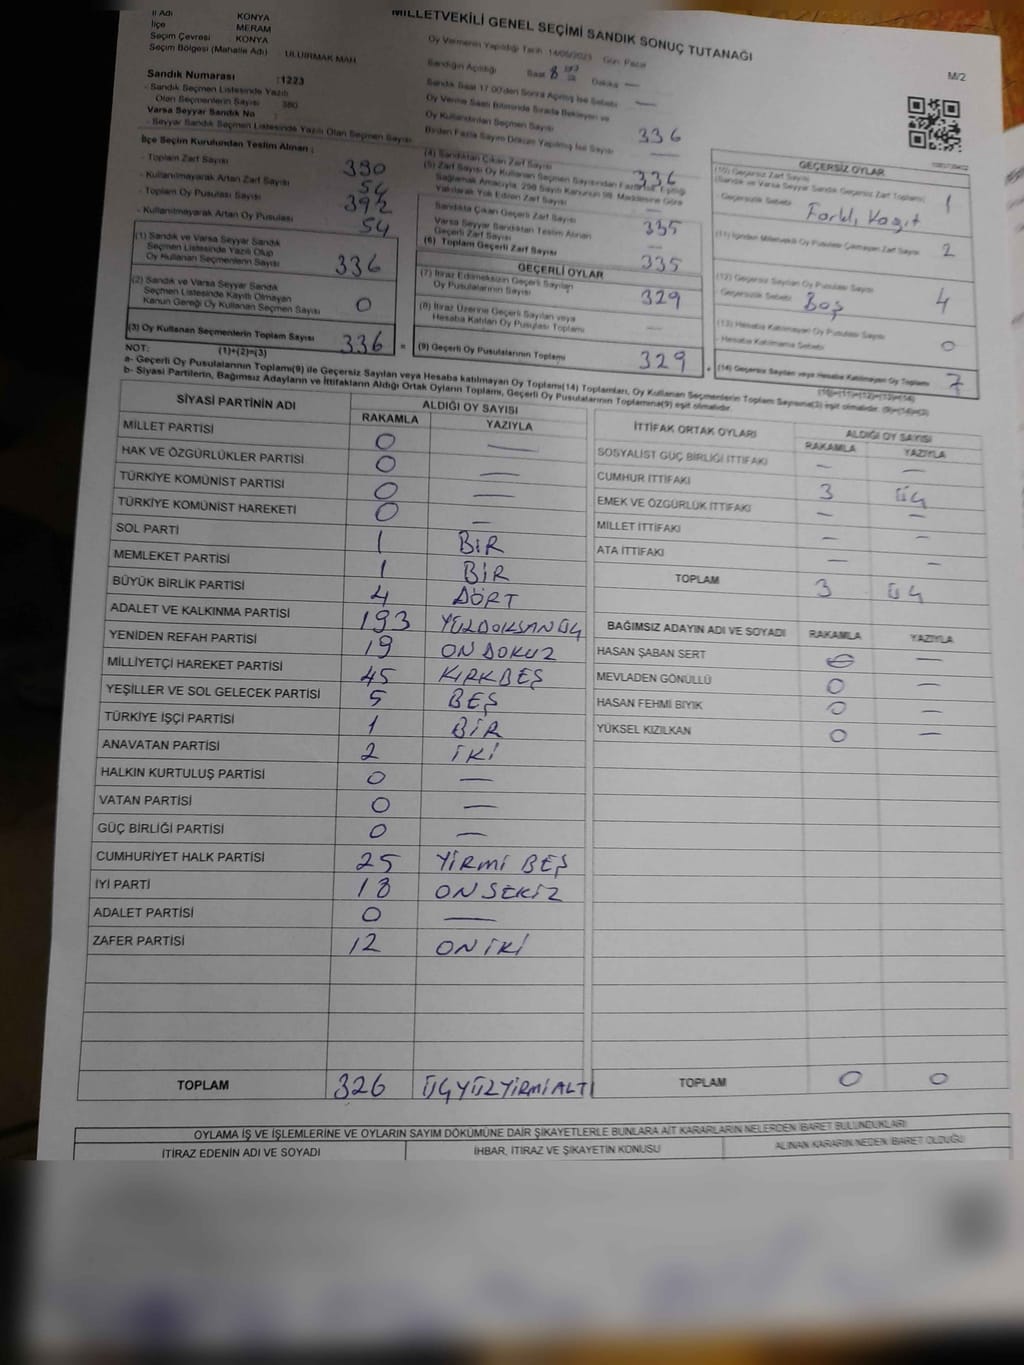 MİLLETVEKİLİ GENEL SEÇİMİ SANDIK SONUÇ TUTANAĞI
M/2
İl Adı KONYA
İlçe MERAM
Seçim Çevresi KONYA
Seçim Bölgesi (Mahalle Adı) ULUIRMAK MAH.
Sandık Numarası :1223
- Sandık Seçmen Listesinde Yazılı
Olan Seçmenlerin Sayısı 380
Varsa Seyyar Sandık No :
- Seyyar Sandık Seçmen Listesinde Yazılı Olan Seçmen Sayısı
Oy Vermenin Yapıldığı Tarih 14/05/2023 Gün Pazar
Sandığın Açıldığı Saat 8 Dakika —
Sandık Saat 17:00'den Sonra Açılmış İse Sebebi —
Oy Verme Saati Bitiminde Sırada Bekleyen ve
Oy Kullandırılan Seçmen Sayısı 336
Birden Fazla Sayım Döküm Yapılmış İse Sayısı —
İlçe Seçim Kurulundan Teslim Alınan ;
- Toplam Zarf Sayısı 390
- Kullanılmayarak Artan Zarf Sayısı 54
- Toplam Oy Pusulası Sayısı 392
- Kullanılmayarak Artan Oy Pusulası 54
(1) Sandık ve Varsa Seyyar Sandık
Seçmen Listesinde Yazılı Olup
Oy Kullanan Seçmenlerin Sayısı 336
(2) Sandık ve Varsa Seyyar Sandık
Seçmen Listesinde Kayıtlı Olmayan
Kanun Gereği Oy Kullanan Seçmen Sayısı 0
(3) Oy Kullanan Seçmenlerin Toplam Sayısı 336 =
(4) Sandıktan Çıkan Zarf Sayısı 336
(5) Zarf Sayısı Oy Kullanan Seçmen Sayısından Fazla İse Eşitliği
Sağlamak Amacıyla, 298 Sayılı Kanunun 98. Maddesine Göre
Yakılarak Yok Edilen Zarf Sayısı —
Sandıkta Çıkan Geçerli Zarf Sayısı 335
Varsa Seyyar Sandıktan Teslim Alınan
Geçerli Zarf Sayısı —
(6) Toplam Geçerli Zarf Sayısı 335
GEÇERLİ OYLAR
(7) İtiraz Edilmeksizin Geçerli Sayılan
Oy Pusulalarının Sayısı 329
(8) İtiraz Üzerine Geçerli Sayılan veya
Hesaba Katılan Oy Pusulası Toplamı —
(9) Geçerli Oy Pusulalarının Toplamı 329 +
GEÇERSİZ OYLAR
(10) Geçersiz Zarf Sayısı
(Sandık ve Varsa Seyyar Sandık Geçersiz Zarf Toplamı) 1
Geçersizlik Sebebi Farklı Kağıt
(11) İçinden Milletvekili Oy Pusulası Çıkmayan Zarf Sayısı 2
(12) Geçersiz Sayılan Oy Pusulası Sayısı 4
Geçersizlik Sebebi Boş
(13) Hesaba Katılmayan Oy Pusulası Sayısı 0
- Hesaba Katılmama Sebebi
(14) Geçersiz Sayılan veya Hesaba Katılmayan Oy Toplamı 7
NOT: (1)+(2)=(3) (10)+(11)+(12)+(13)=(14)
a- Geçerli Oy Pusulalarının Toplamı(9) ile Geçersiz Sayılan veya Hesaba katılmayan Oy Toplamı(14) Toplamları, Oy Kullanan Seçmenlerin Toplam Sayısına(3) eşit olmalıdır. (9)+(14)=(3)
b- Siyasi Partilerin, Bağımsız Adayların ve İttifakların Aldığı Ortak Oyların Toplamı, Geçerli Oy Pusulalarının Toplamına(9) eşit olmalıdır.
SİYASİ PARTİNİN ADI ALDIĞI OY SAYISI
RAKAMLA YAZIYLA
MİLLET PARTİSİ 0 —
HAK VE ÖZGÜRLÜKLER PARTİSİ 0 —
TÜRKİYE KOMÜNİST PARTİSİ 0 —
TÜRKİYE KOMÜNİST HAREKETİ 0 —
SOL PARTİ 1 BİR
MEMLEKET PARTİSİ 1 BİR
BÜYÜK BİRLİK PARTİSİ 4 DÖRT
ADALET VE KALKINMA PARTİSİ 193 YÜZDOKSAN ÜÇ
YENİDEN REFAH PARTİSİ 19 ON DOKUZ
MİLLİYETÇİ HAREKET PARTİSİ 45 KIRKBEŞ
YEŞİLLER VE SOL GELECEK PARTİSİ 5 BEŞ
TÜRKİYE İŞÇİ PARTİSİ 1 BİR
ANAVATAN PARTİSİ 2 İKİ
HALKIN KURTULUŞ PARTİSİ 0 —
VATAN PARTİSİ 0 —
GÜÇ BİRLİĞİ PARTİSİ 0 —
CUMHURİYET HALK PARTİSİ 25 YİRMİ BEŞ
İYİ PARTİ 18 ON SEKİZ
ADALET PARTİSİ 0 —
ZAFER PARTİSİ 12 ON İKİ
TOPLAM 326 ÜÇYÜZYİRMİALTI
İTTİFAK ORTAK OYLARI ALDIĞI OY SAYISI
RAKAMLA YAZIYLA
SOSYALİST GÜÇ BİRLİĞİ İTTİFAKI — —
CUMHUR İTTİFAKI 3 ÜÇ
EMEK VE ÖZGÜRLÜK İTTİFAKI — —
MİLLET İTTİFAKI — —
ATA İTTİFAKI — —
TOPLAM 3 ÜÇ
BAĞIMSIZ ADAYIN ADI VE SOYADI RAKAMLA YAZIYLA
HASAN ŞABAN SERT 0 —
MEVLADEN GÖNÜLLÜ 0 —
HASAN FEHMİ BIYIK 0 —
YÜKSEL KIZILKAN 0 —
TOPLAM 0 0
OYLAMA İŞ VE İŞLEMLERİNE VE OYLARIN SAYIM DÖKÜMÜNE DAİR ŞİKAYETLERLE BUNLARA AİT KARARLARIN NELERDEN İBARET BULUNDUKLARI
İTİRAZ EDENİN ADI VE SOYADI İHBAR, İTİRAZ VE ŞİKAYETİN KONUSU ALINAN KARARIN NEDEN İBARET OLDUĞU